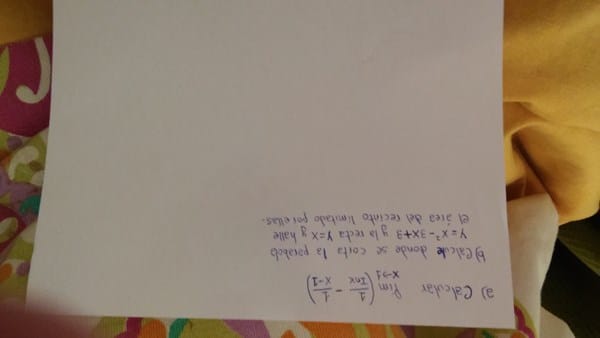 a) Calcular lim x→1 (1/lnx - 1/x-1)
b) Calcule donde se corta la parabola
y=x²-3x+3 y la recta y=x y halle
el área del recinto limitado por ellas.